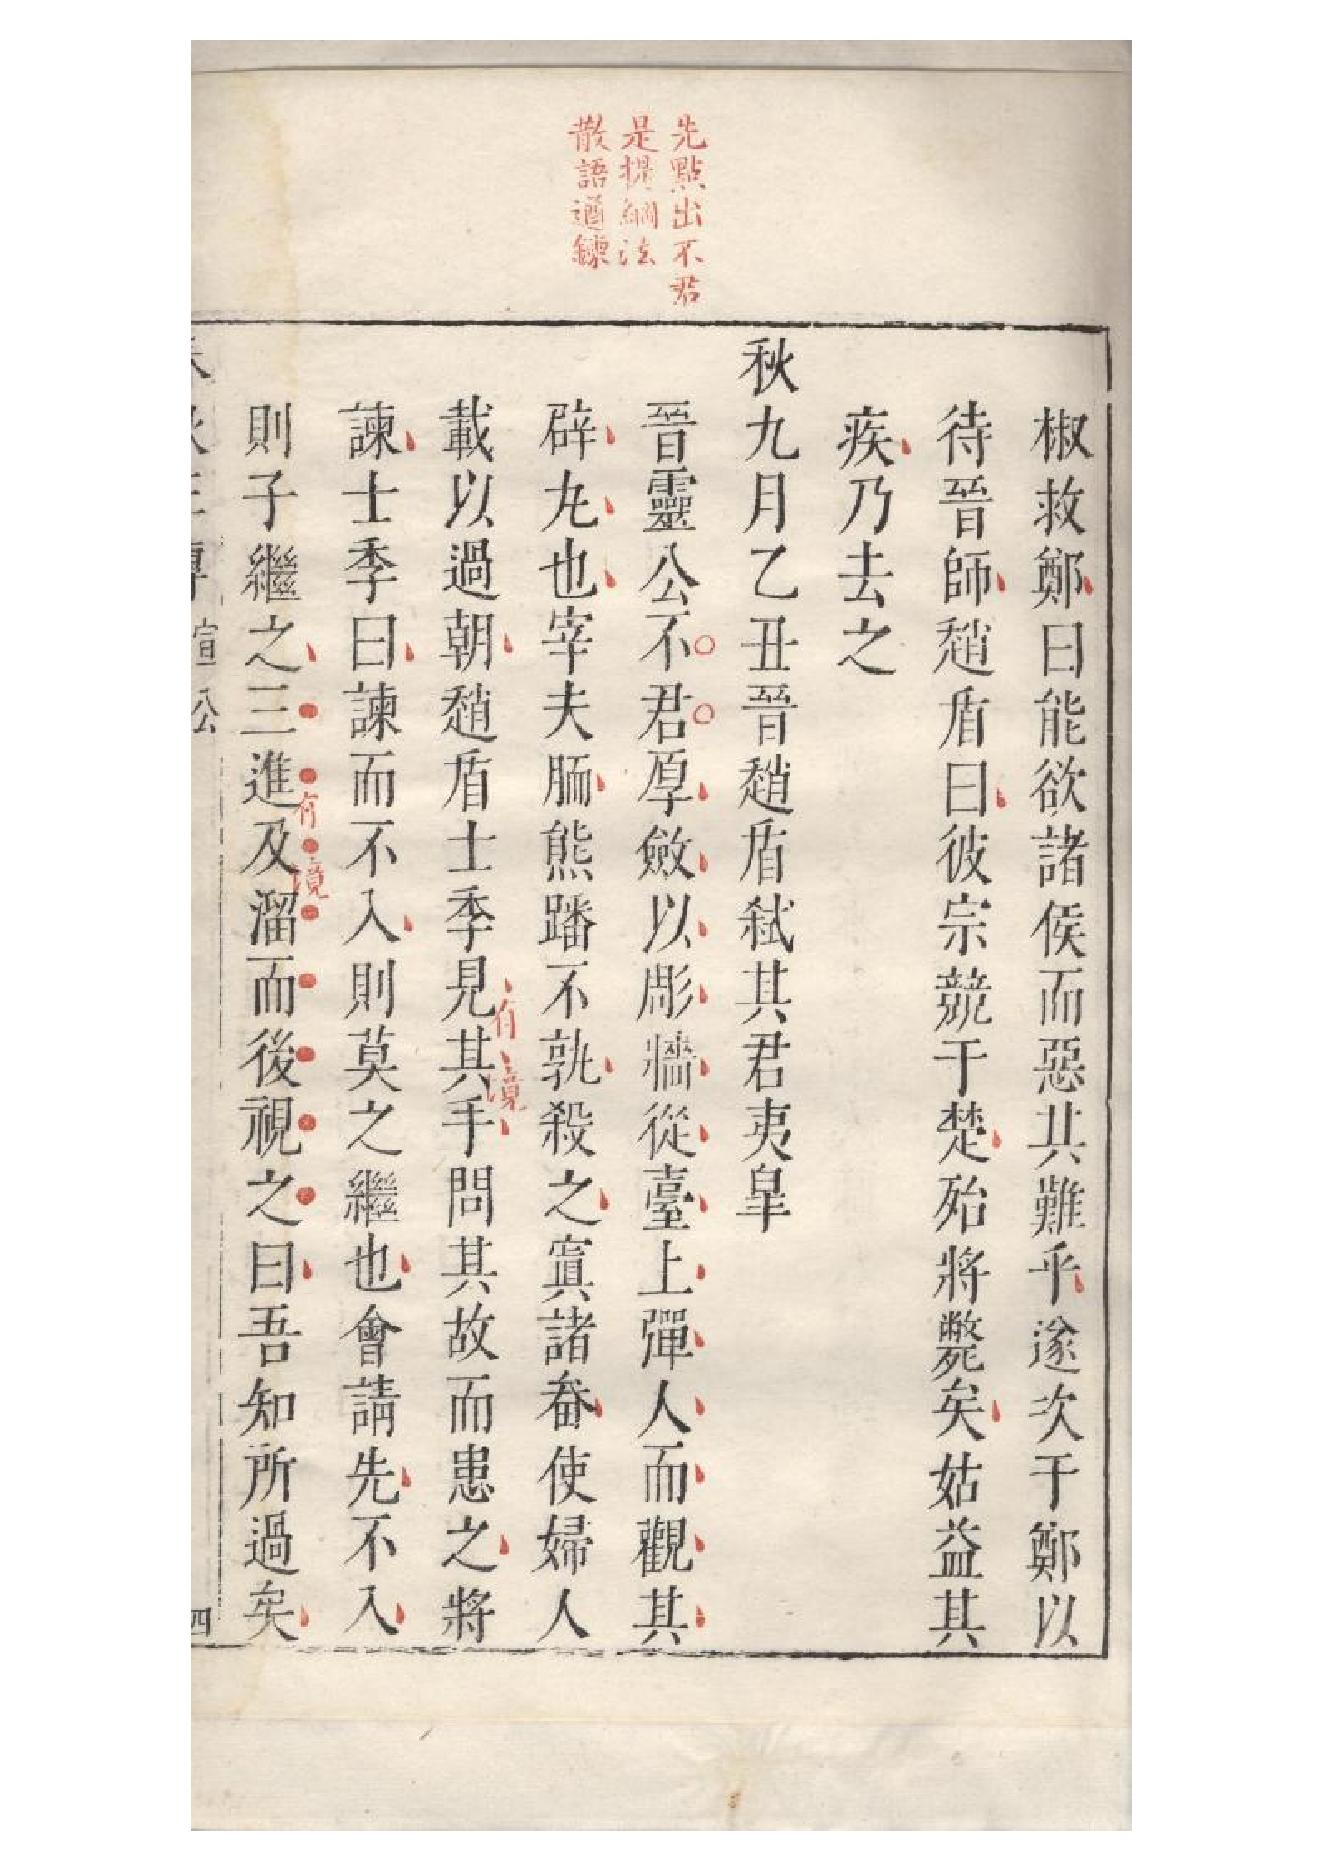 先點出不君
是提綱法
散語遒鍊
椒救鄭曰能欲諸侯而惡其難乎遂次于鄭以
待晉師趙盾曰彼宗競于楚殆將斃矣姑益其
疾乃去之
秋九月乙丑晉趙盾弑其君夷皐
晉靈公不君厚斂以彫牆從臺上彈人而觀其
辟丸也宰夫胹熊蹯不孰殺之寘諸畚使婦人
載以過朝趙盾士季見其手問其故而患之將
有境
諫士季曰諫而不入則莫之繼也會請先不入
則子繼之三進及溜而後視之曰吾知所過矣
有境
宣公
四